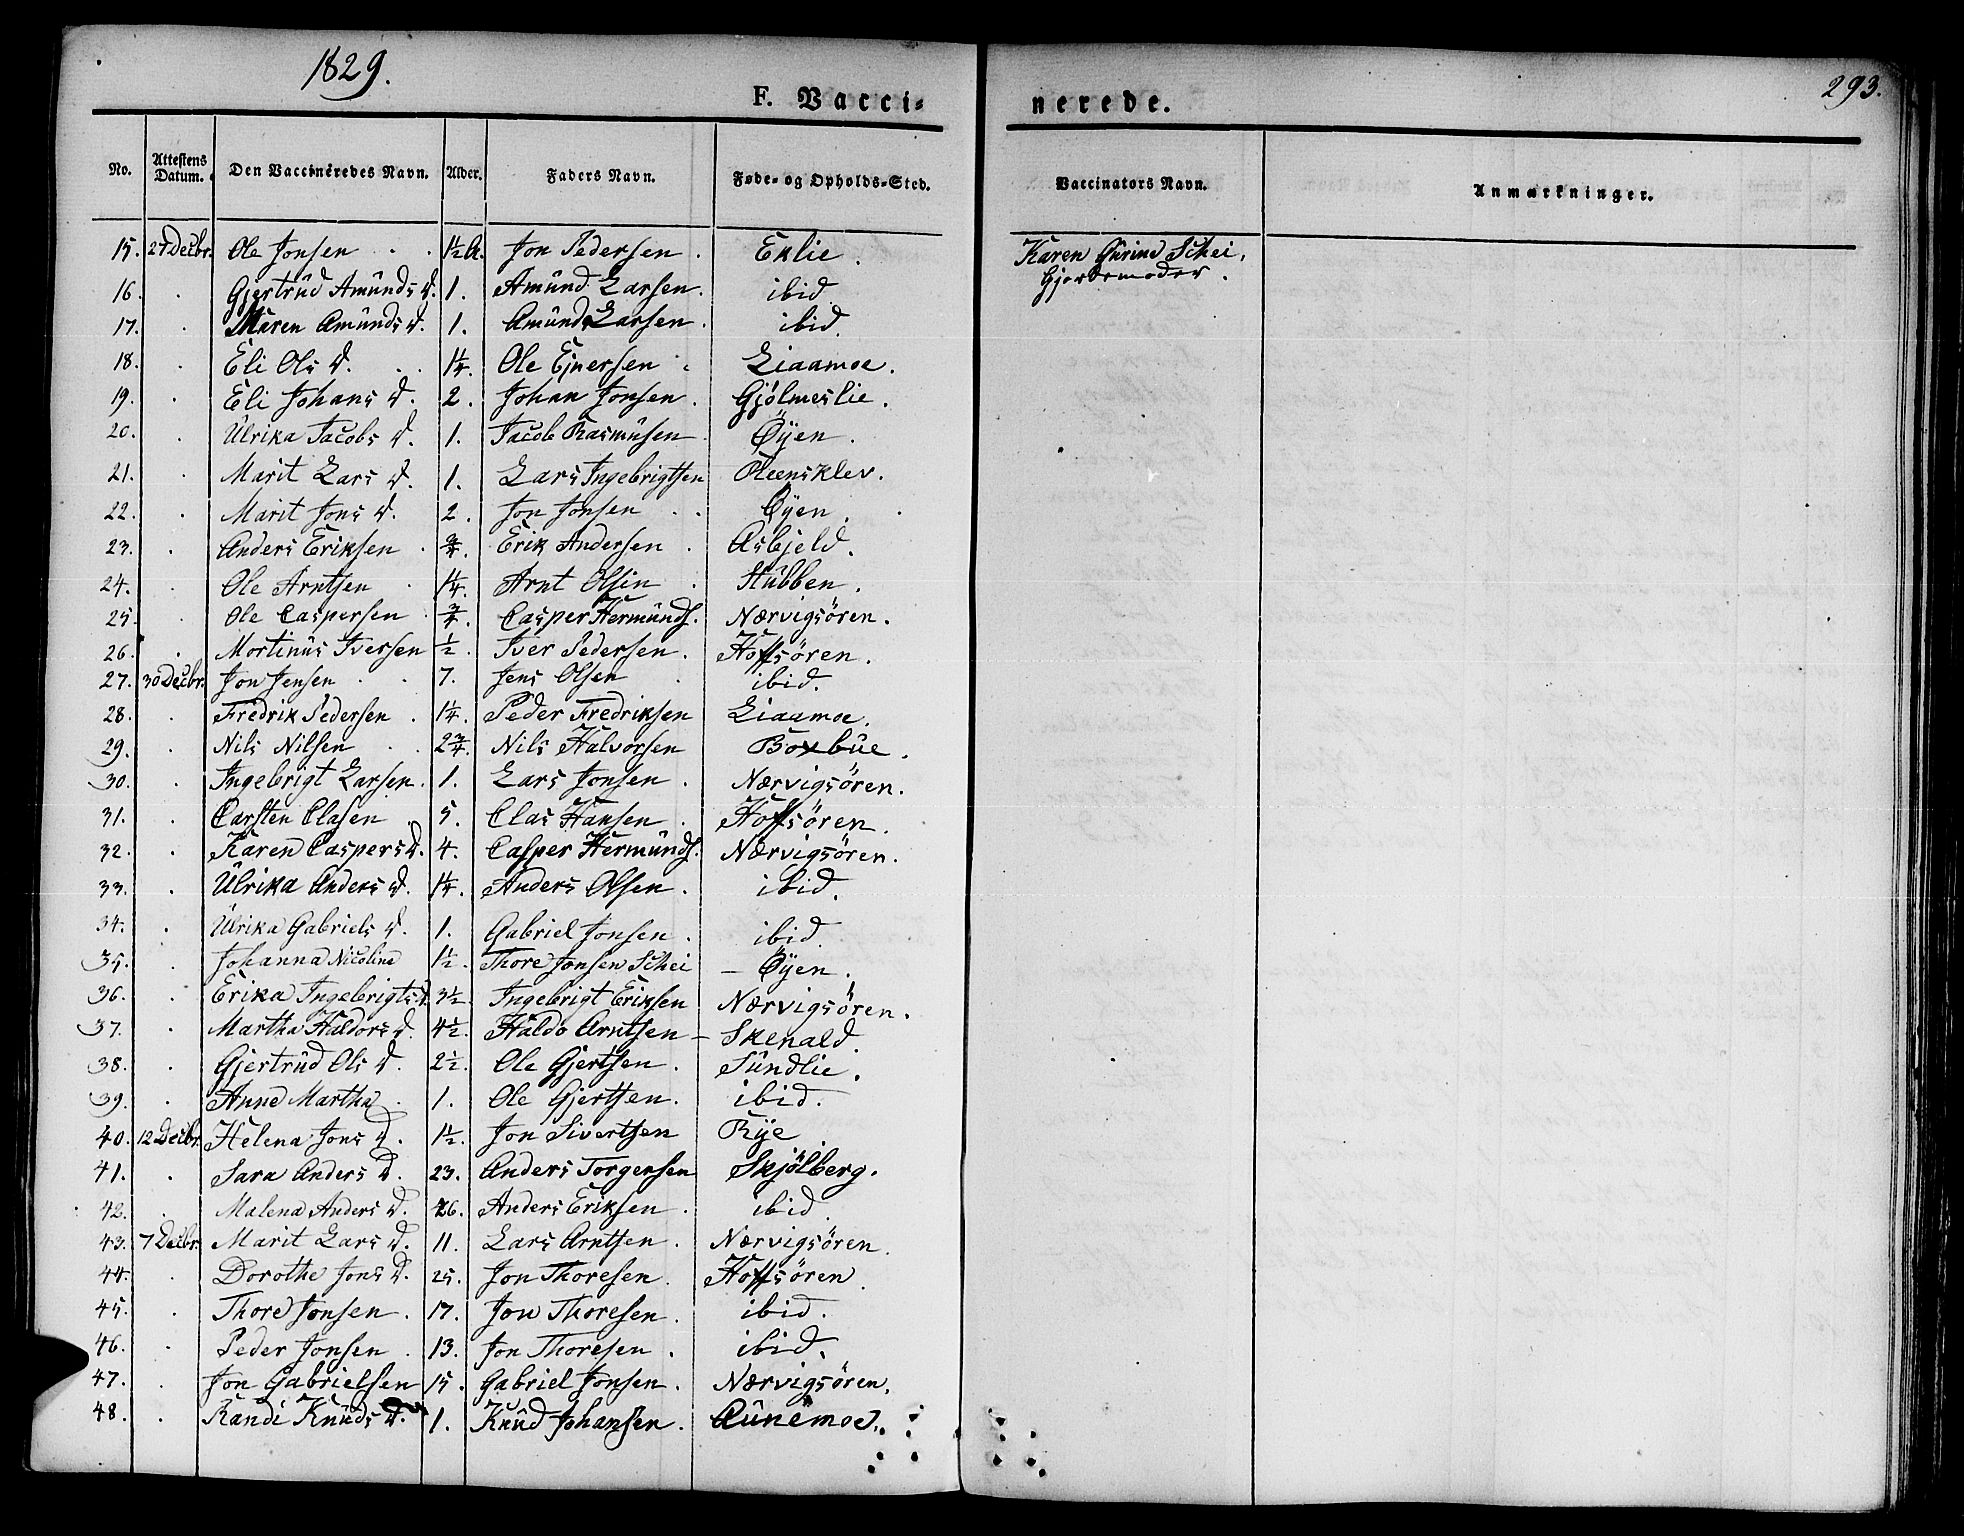 1829.
293.
F. Vacci-
nerede.
No. Attestens Datum. Den Vaccineredes Navn. Alder. Faders Navn. Føde- og Opholds-Sted. Vaccinators Navn. Anmærkninger.
15. 27 Decbr. Ole Jonsen 1½ A. Jon Pedersen. Eklie. Karen Gurine Schei,
Gjordemoder.
16. Gjertrüd Amünds D. 1. Amünd Larsen. ibid
17. Maren Amünds D. 1. Amünd Larsen. ibid.
18. Eli Ols D. 1¼. Ole Ejnersen Liaamoe.
19. Eli Johans D. 2. Johan Jonsen. Gjølmeslie.
20. Ülrika Jacobs D. 1. Jacob Rasmüsen Øyen.
21. Marit Lars D. 1. Lars Ingebrigtsen Reensklev.
22. Marit Jons D. 2. Jon Jonsen Øyen.
23. Anders Eriksen. ¾. Erik Andersen. Asbjeld.
24. Ole Arntsen. 1¼. Arnt Olsen. Stübben.
25. Ole Caspersen. ¾. Casper Hermünds. Nærvigsören.
26. Mortinüs Iversen ½. Iver Pedersen. Hoffsören.
27. 30 Decbr. Jon Jensen 7. Jens Olsen. ibid.
28. Fredrik Pedersen. 1¼. Peder Fredriksen Liaamoe.
29. Nils Nilsen 2¾. Nils Halvorsen Boxbüe.
30. Ingebrigt Larsen. 1. Lars Jonsen. Nærvigsören.
31. Carsten Clasen 5. Clas Hansen. Hoffsören.
32. Karen Caspers D. 4. Casper Hermünds. Nærvigsören.
33. Ülrika Anders D. 1¼. Anders Olsen. ibid.
34. Ülrika Gabriels D. 1. Gabriel Jonsen. ibid.
35. Johanna Nicolina 1½. Thore Jonsen Schei – Øyen.
36. Erika Ingebrigts D. 3½. Ingebrigt Eriksen Nærvigsören.
37. Martha Haldors D. 4½. Haldo Arntsen – Skenald.
38. Gjertrüd Ols D. 2½. Ole Gjertsen. Sündlie.
39. Anne Martha. 1. Ole Gjertsen. ibid.
40. 12 Decbr. Helena Jons D. 1½. Jon Sivertsen Rye
41. Sara Anders D. 23. Anders Torgersen Skjölberg.
42. Malena Anders D. 26. Anders Eriksen. ibid.
43. 7 Decbr. Marit Lars D. 11. Lars Arntsen. Nærvigsören.
44. Dorothe Jons D. 25. Jon Thoresen. Hoffsören.
45. Thore Jonsen. 17. Jon Thoresen. ibid.
46. Peder Jonsen. 13. Jon Thoresen. ibid.
47. Jon Gabrielsen 15. Gabriel Jonsen. Nærvigsören.
48. Randi Knüds D. 1. Knüd Johansen. Aünemoe.